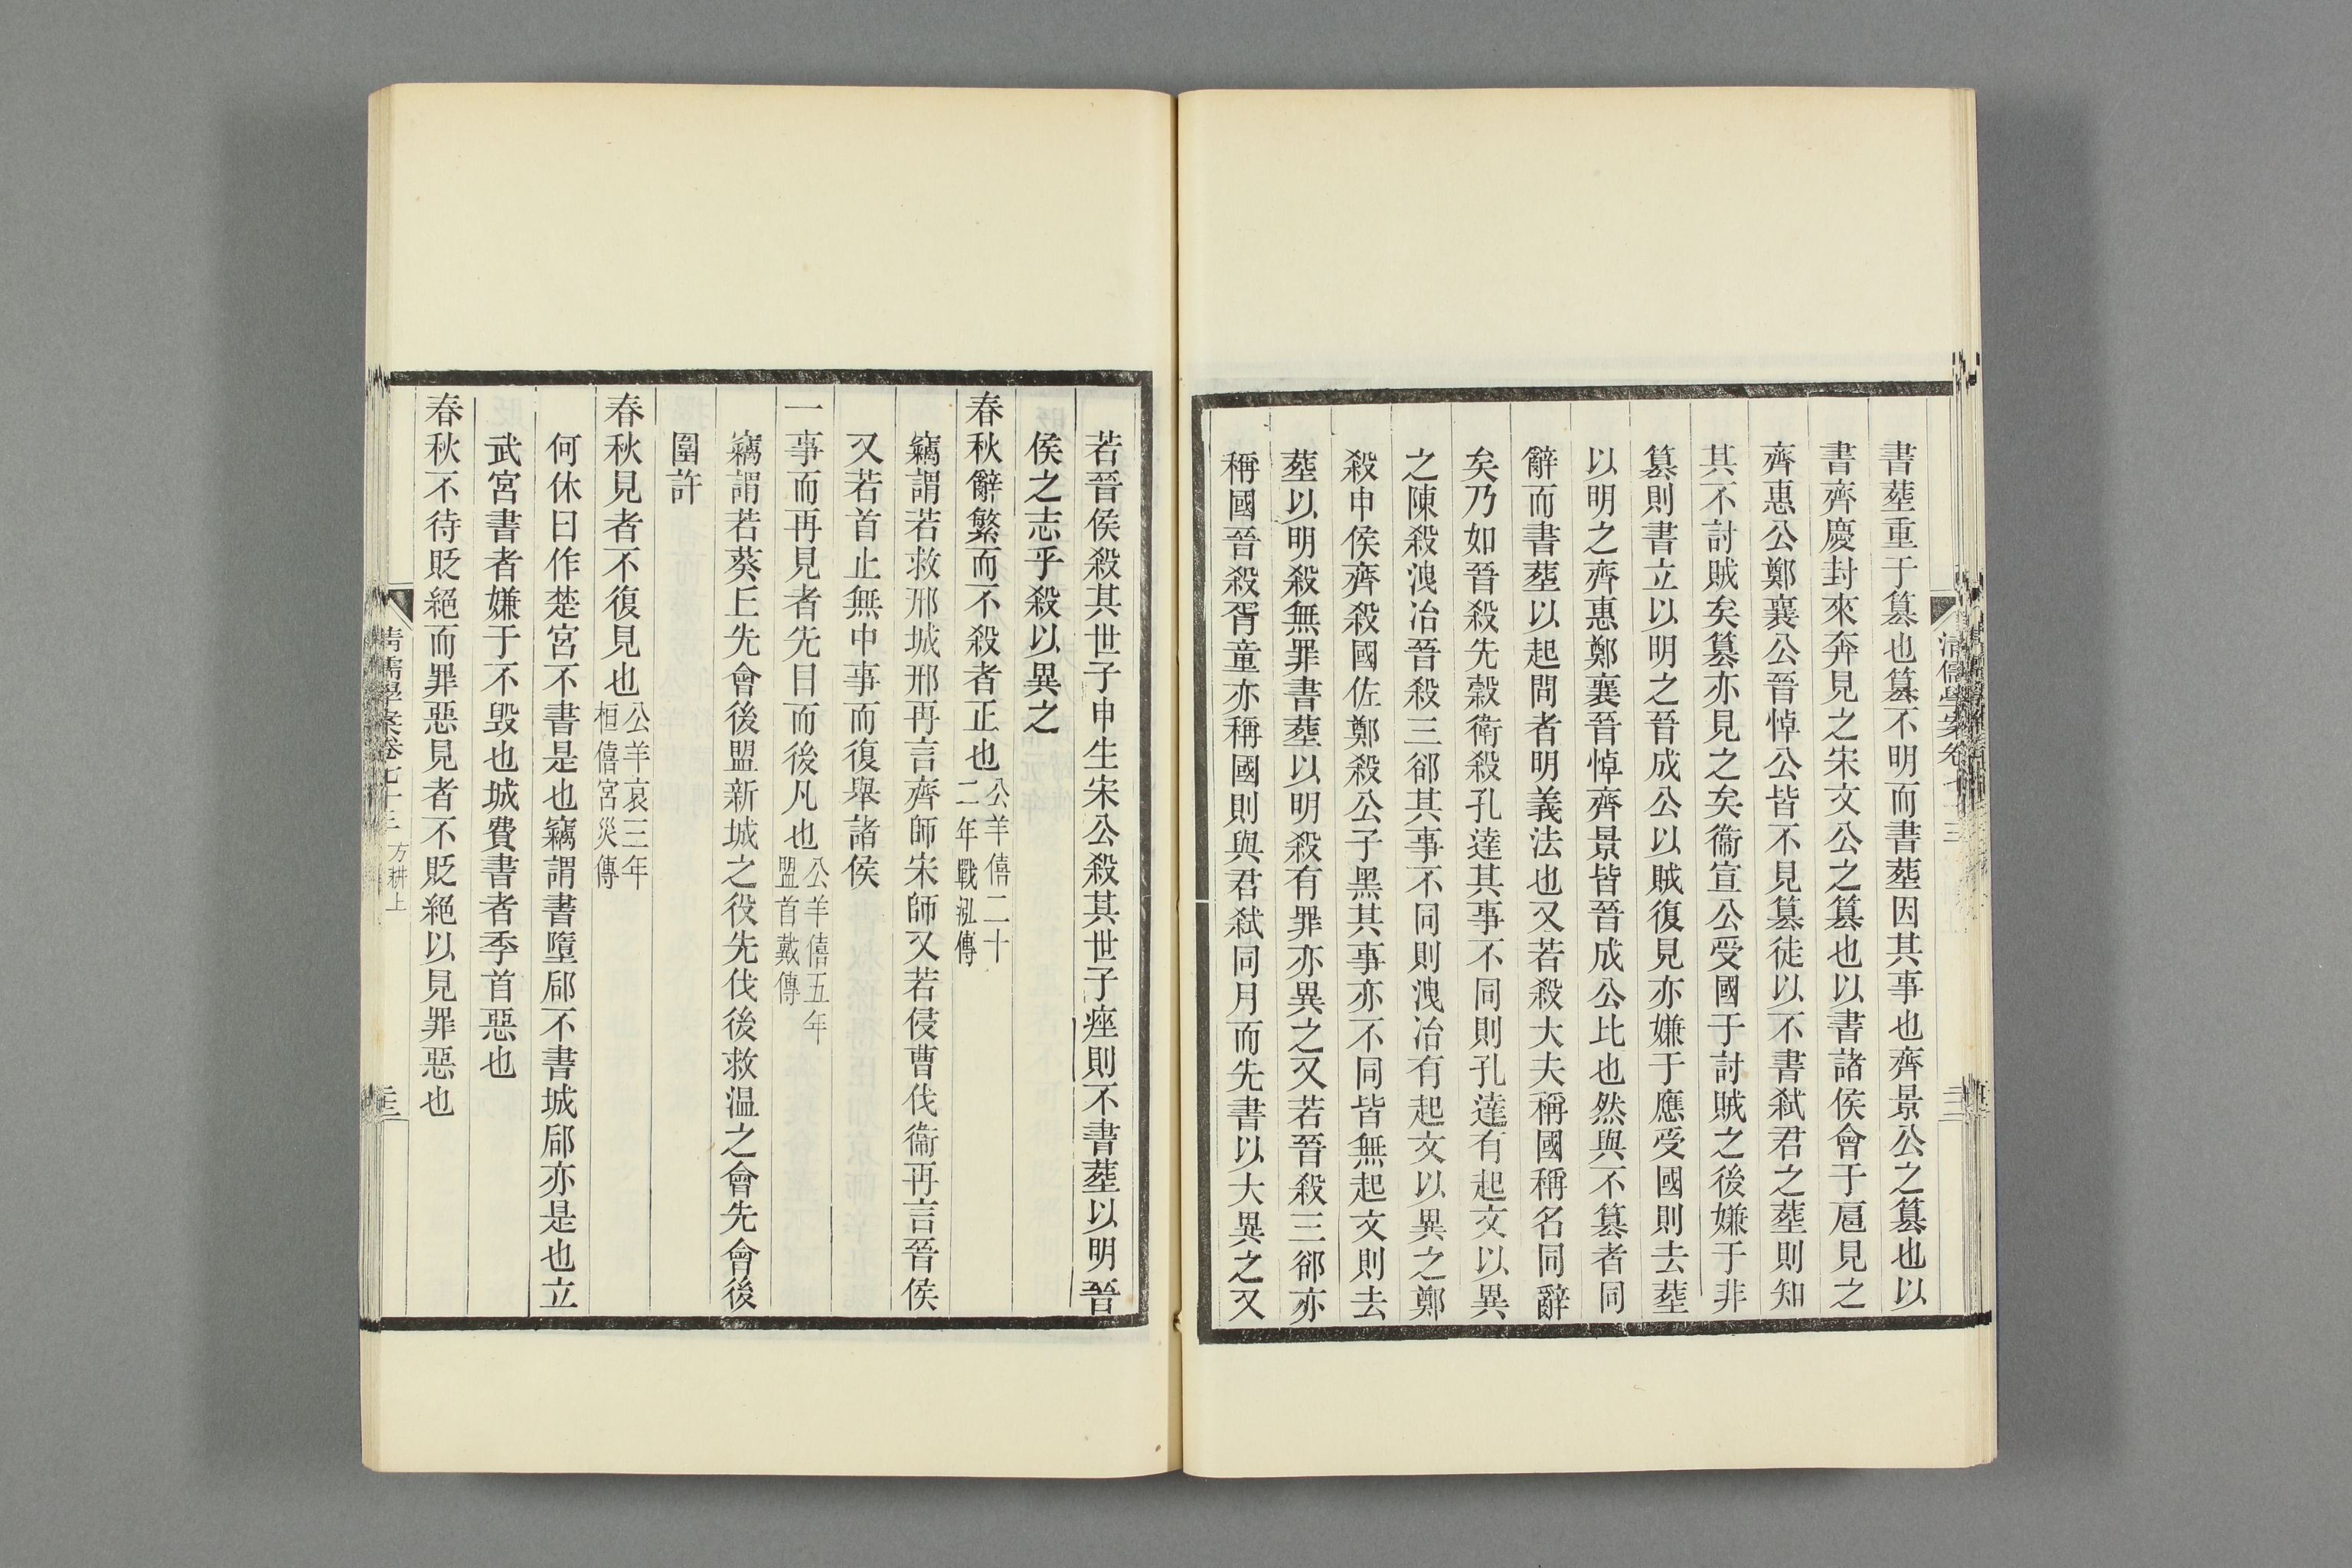 書葬重于篡也篡不明而書葬因其事也齊景公之篡也以
書齊慶封來奔見之宋文公之篡也以書諸侯會于扈見之
齊惠公鄭襄公晉悼公皆不見篡徒以不書弒君之葬則知
其不討賊矣篡亦見之矣衞宣公受國于討賊之後嫌于非
篡則書立以明之晉成公以賊復見亦嫌于應受國則去葬
以明之齊惠鄭襄晉悼齊景皆晉成公比也然與不篡者同
辭而書葬以起問者明義法也又若殺大夫稱國稱名同辭
矣乃如晉殺先縠衛殺孔達其事不同則孔達有起文以異
之陳殺洩冶晉殺三郤其事不同則洩冶有起文以異之鄭
殺申侯齊殺國佐鄭殺公子黑其事亦不同皆無起文則去
葬以明殺無罪書葬以明殺有罪亦異之又若晉殺三郤亦
稱國晉殺胥童亦稱國則與君弒同月而先書以大異之又
若晉侯殺其世子申生宋公殺其世子痤則不書葬以明晉
侯之志乎殺以異之
春秋辭繁而不殺者正也公羊僖二十二年戰泓傳
竊謂若救邢城邢再言齊師宋師又若侵曹伐衞再言晉侯
又若首止無中事而復舉諸侯
一事而再見者先目而後凡也公羊僖五年盟首戴傳
竊謂若葵丘先會後盟新城之役先伐後救温之會先會後
圍許
春秋見者不復見也公羊哀三年桓僖宮災傳
何休曰作楚宮不書是也竊謂書墮郈不書城郈亦是也立
武宮書者嫌于不毁也城費書者季首惡也
春秋不待貶絕而罪惡見者不貶絕以見罪惡也
清儒學案卷七十三 方耕上